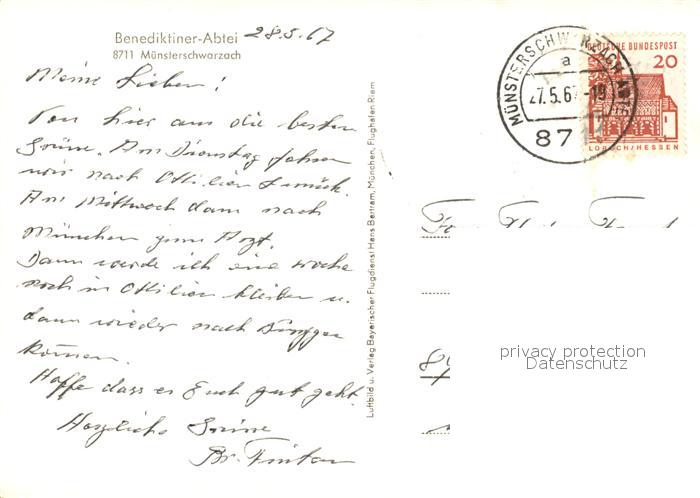 Benediktiner-Abtei
8711 Münsterschwarzach
28.5.67
Meine Lieben!
Von hier aus die besten
Grüsse. Am Dienstag fahren
wir nach Ottilien zurück.
Am Mittwoch dann nach
München zum Arzt.
Dann werde ich eine Woche
noch in Ottilien bleiben u.
dann wieder nach
kommen.
Hoffe dass es Euch gut geht.
Herzliche Grüsse
Br.
Luftbild u. Verlag Bayerischer Flugdienst Hans Bertram, München, Flughafen Riem
MÜNSTERSCHWARZACH ABTEI
a
27.5.67-19
8711
DEUTSCHE BUNDESPOST
20
LORSCH/HESSEN
privacy protection
Datenschutz